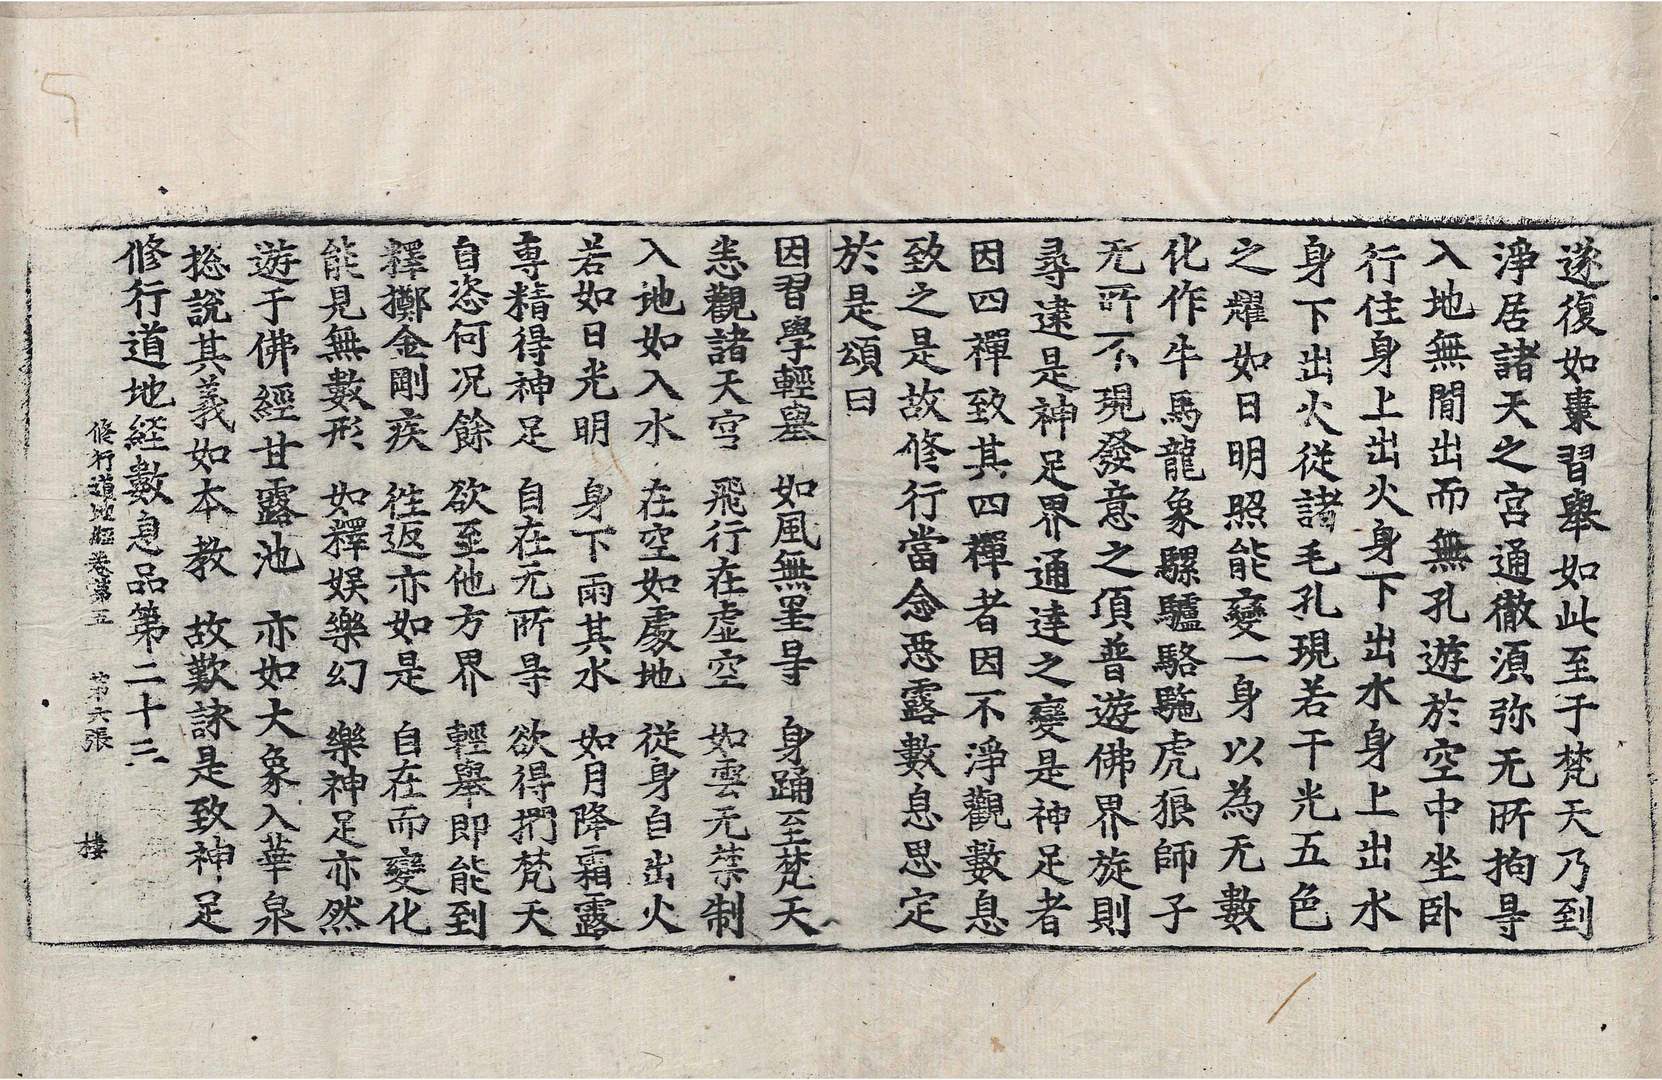 遂復如棗習舉如此至于梵天乃到
淨居諸天之宮通徹湏弥无所拘㝵
入地無閒出而無孔遊於空中坐臥
行住身上出火身下出水身上出水
身下出火從諸毛孔現若干光五色
之耀如日明照能變一身以為无數
化作牛馬龍象騾驢駱駞虎狼師子
无所不現發意之頃普遊佛界旋則
尋逮是神足界通達之變是神足者
因四禪致其四禪者因不淨觀數息
致之是故修行當念惡露數息思定
於是頌曰
因習學輕舉　如風無罣㝵　身踊至梵天
悉觀諸天宮　飛行在虛空　如雲无禁制
入地如入水　在空如處地　從身自出火
若如日光明　身下雨其水　如月降霜露
專精得神足　自在无所㝵　欲得捫梵天
自恣何况餘　欲至他方界　輕舉即能到
釋擲金剛疾　往返亦如是　自在而變化
能見無數形　如釋娛樂幻　樂神足亦然
遊于佛經甘露池　亦如大象入華泉
捴說其義如本教　故歎詠是致神足
修行道地経數息品第二十三
修行道地經卷第五　第六張　樓